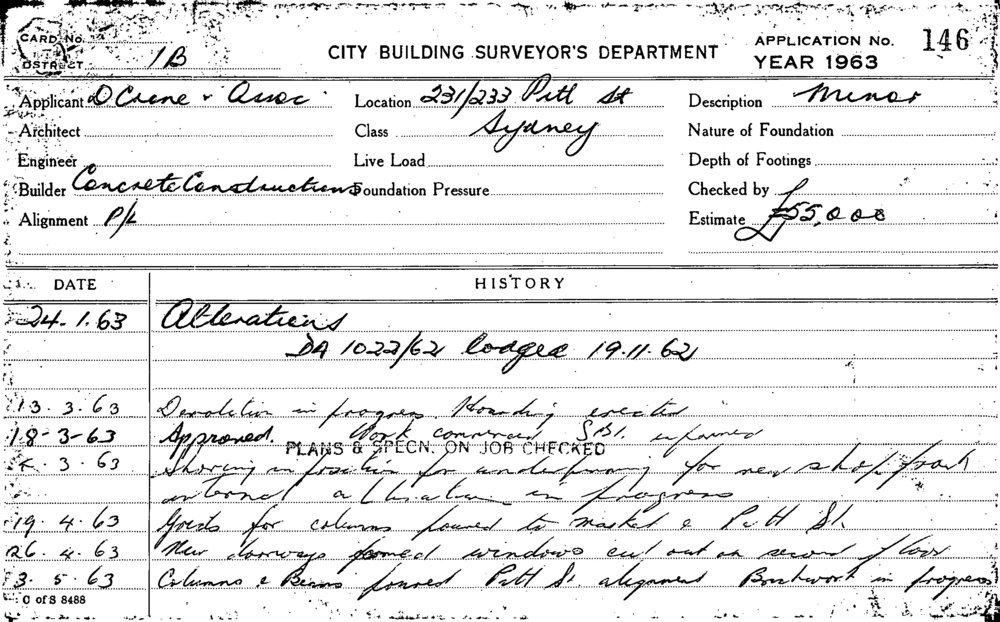 CARD No.
DISTRICT 1B
CITY BUILDING SURVEYOR'S DEPARTMENT
APPLICATION No. 146
YEAR 1963
Applicant D Crone & Assoc.
Location 231/233 Pitt St
Description Minor
Architect
Class Sydney
Nature of Foundation
Engineer
Live Load
Depth of Footings
Builder Concrete Constructions
Foundation Pressure
Checked by
Alignment P/L
Estimate £55,000
DATE HISTORY
24.1.63 Alterations
DA 1022/62 lodged 19.11.62
13.3.63 Demolition in progress. Hoarding erected
18-3-63 Approved. Work commenced informed
PLANS & SPECN. ON JOB CHECKED
3.63 Shoring in position for underpinning for new shop front
internal alteration in progress
19.4.63 for columns poured to Market & Pitt St.
26.4.63 New doorways formed windows cut out on second floor
3.5.63 Columns & Beams poured Pitt St. alignment Brickwork in progress
C of S 8488